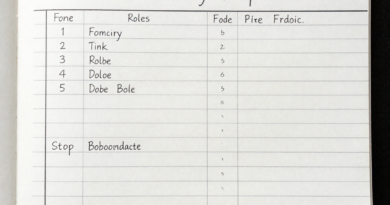 Fone Roles Fode Pixe Frdoic.
1 Fomciry b
2 Tink 2
3 Rolbe 5
4 Doloe 6
5 Dobe Bole 5
Stop Boboondacte